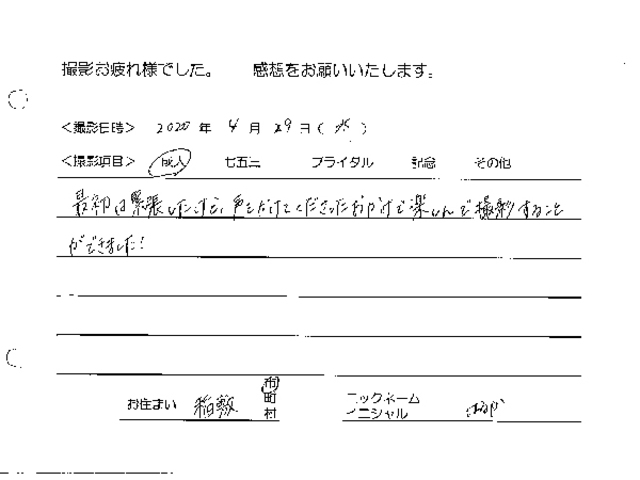 撮影お疲れ様でした。 感想をお願いいたします。
<撮影日時> 2020 年 4 月 29 日 ( 水 )
<撮影項目> 成人 七五三 ブライダル 記念 その他
最初は緊張したけど、声をかけてくださったおかげで楽しんで撮影すること
ができました!
お住まい 稲敷 市 町 村
ニックネーム イニシャル はるか